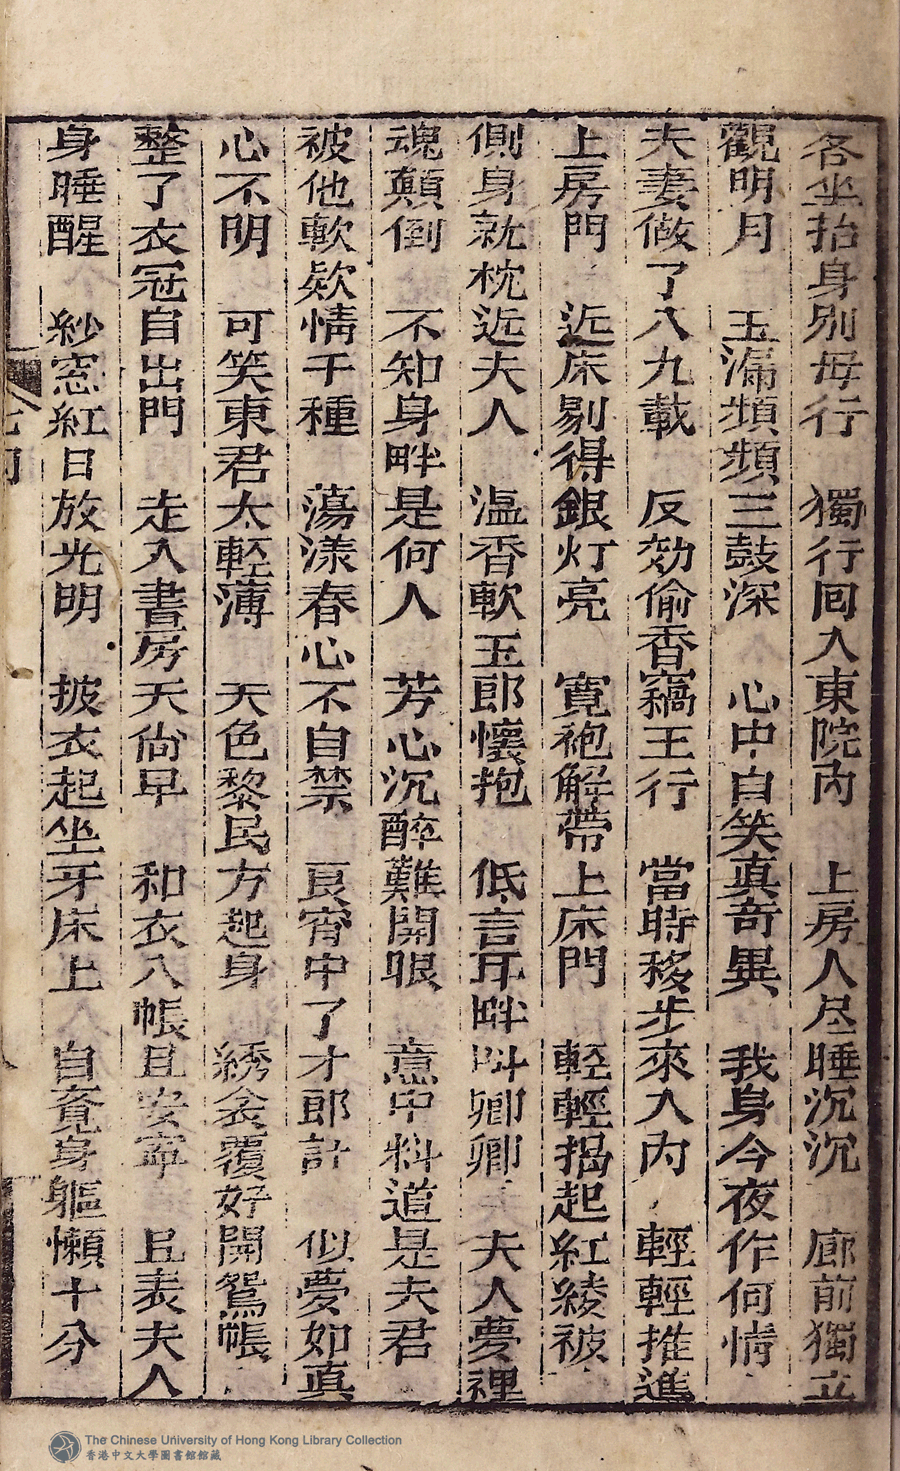 各坐抬身别母行　獨行囘入東院内　上房人尽睡沉沉　廊前獨立
觀明月　玉漏頻頻三鼓深　心中自笑真竒異　我身今夜作何情
夫妻做了八九載　反効偷香竊玉行　當時移步來入内　輕輕推進
上房門　近床剔得銀灯亮　寬袍解帶上床門　輕輕揭起紅綾被
側身就枕近夫人　温香軟玉郎懷抱　低言耳畔叫卿卿　夫人夢裡
魂顛倒　不知身畔是何人　芳心沉醉難開眼　意中料道是夫君
被他軟欵情千種　蕩漾春心不自禁　良宵中了才郎計　似夢如真
心不明　可笑東君太輕薄　天色黎民方起身　綉衾覆好開鴛帳
整了衣冠自出門　走入書房天尙早　和衣入帳且安寧　且表夫人
身睡醒　紗窓紅日放光明　披衣起坐牙床上　自覔身軀懶十分
The Chinese University of Hong Kong Library Collection
香港中文大學圖書館館藏